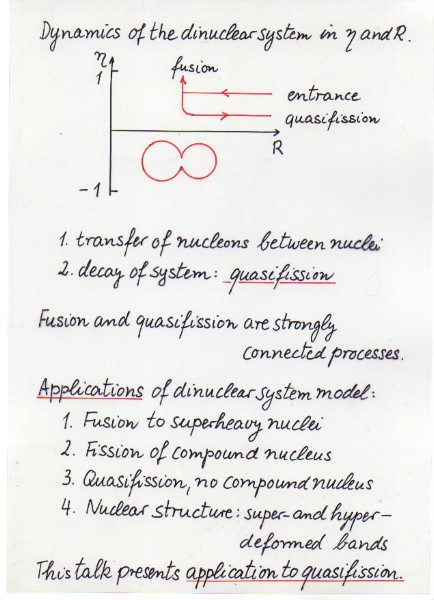 Dynamics of the dinuclear system in η and R.
η
1
fusion
entrance
quasifission
R
−1
1. transfer of nucleons between nuclei
2. decay of system: quasifission
Fusion and quasifission are strongly
connected processes.
Applications of dinuclear system model:
1. Fusion to superheavy nuclei
2. Fission of compound nucleus
3. Quasifission, no compound nucleus
4. Nuclear structure: super- and hyper-
deformed bands
This talk presents application to quasifission.